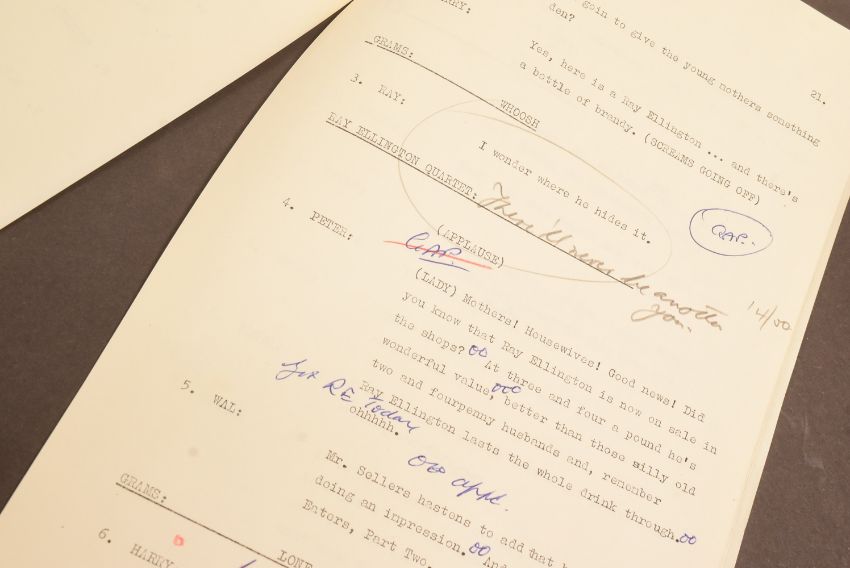 goin to give the young mothers something
den?
21.
Yes, here is a Ray Ellington ... and there's
a bottle of brandy. (SCREAMS GOING OFF)
GRAMS:
WHOOSH
3. RAY:
I wonder where he hides it.
GAP.
RAY ELLINGTON QUARTET: There'll never be another
you.
14/00
(APPLAUSE)
GAP.
4. PETER:
(LADY) Mothers! Housewives! Good news! Did
you know that Ray Ellington is now on sale in
the shops? At three and four a pound he's
wonderful value, better than those silly old
two and fourpenny husbands and, remember
Ray Ellington lasts the whole drink through.
Get RE Today
ohhhhh.
5. WAL:
Mr. Sellers hastens to add that
doing an impression.
Eaters, Part Two.
GRAMS:
6. HARRY